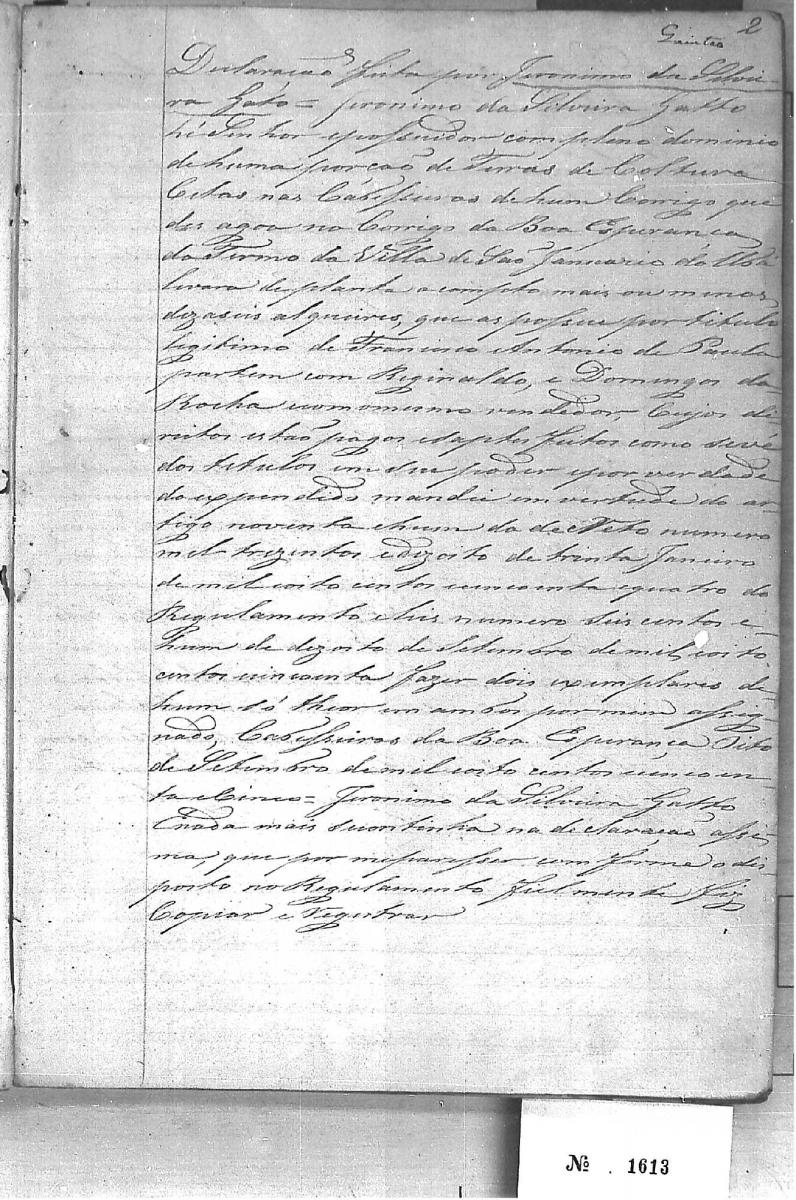 2
Declaração feita por Jeronimo da Silvei-
ra Gato = Jeronimo da Silveira Gatto
hé Senhor epossuidor compleno dominio
dehuma porcaõ de Terras de Coltura
Citas nas Cabisseiras dehum Corrigo que
das agoa no Corrigo da Boa Esperança
do Termo da Villa de Saõ Januario do Ubá
levara deplanta o compto mais ou menos
dezaseis alqueires, que as possue por titulo
legitimo de Francisco Antonio de Paula
partem com Reginaldo, e Domingos da
Rocha ecomomesmo vendedor, Cujos di-
reitos estaõ pagos esaptos feitos como sevê
dos titulos em seu poder epor verdade
do expendido mandei em vertude do ar-
tigo noventa ehum do de Creto numero
mil trezentos edezoito de trinta Janeiro
de mil oito centos cincoenta equatro do
Regulamento eleis numero seis centos e-
hum de dezoito de Setembro de mil, oito
centos cincoenta fazer dois exemplares de-
hum só theor em ambos por mim assig-
nado, Cabisseiras da Boa Esperança Oito
de Setembro de mil oito centos cincoen-
ta eCinco = Jeronimo da Silveira Gatto
Enada mais secontinha na declaracaõ asse-
ma, que por meparesser com forme o dis-
posto no Regulamento fielmente fiz
Copiar e Registrar
Nº . 1613